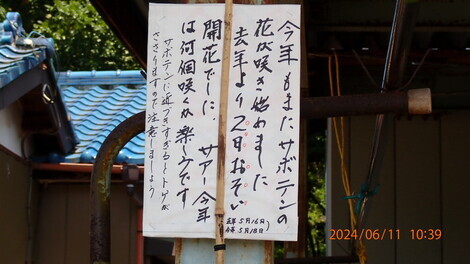 今年もまたサボテンの
花が咲き始めました
去年より2日おそい
開花でした。サアー今年
は何個咲くか楽しみです
サボテンに近づきすぎるとトゲが
ささりますので注意しましょう
去年5月16日
今年5月18日
2024/06/11 10:39